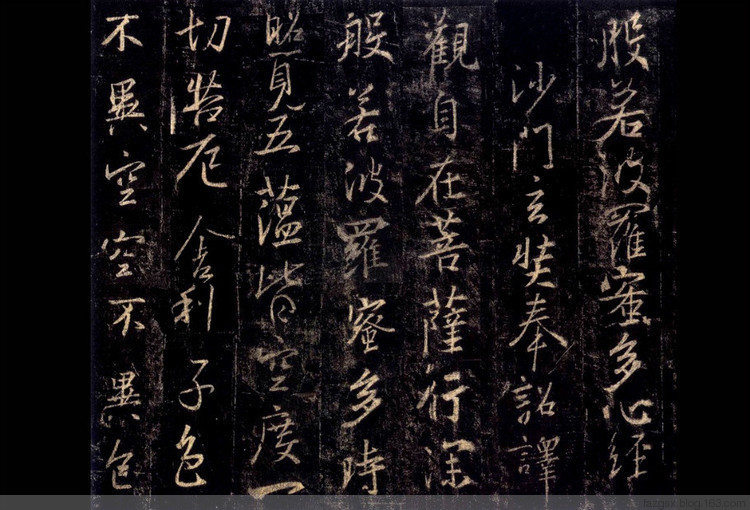 般若波羅蜜多心經
沙門玄奘奉詔譯
觀自在菩薩行深
般若波羅蜜多時
照見五蘊皆空度一
切苦厄舍利子色
不異空空不異色
fazgsx.blog.163.com